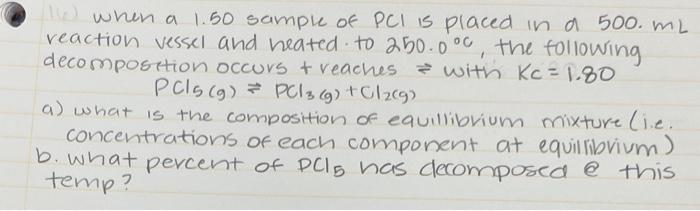 when a 1.50 sample of PCl is placed in a 500. mL
reaction vessel and heated to 250.0°C, the following
decomposition occurs + reaches ⇌ with Kc = 1.80
PCl5(g) ⇌ PCl3(g) + Cl2(g)
a) what is the composition of equillibrium mixture (i.e.
concentrations of each component at equillibrium)
b. what percent of PCl5 has decomposed @ this
temp?